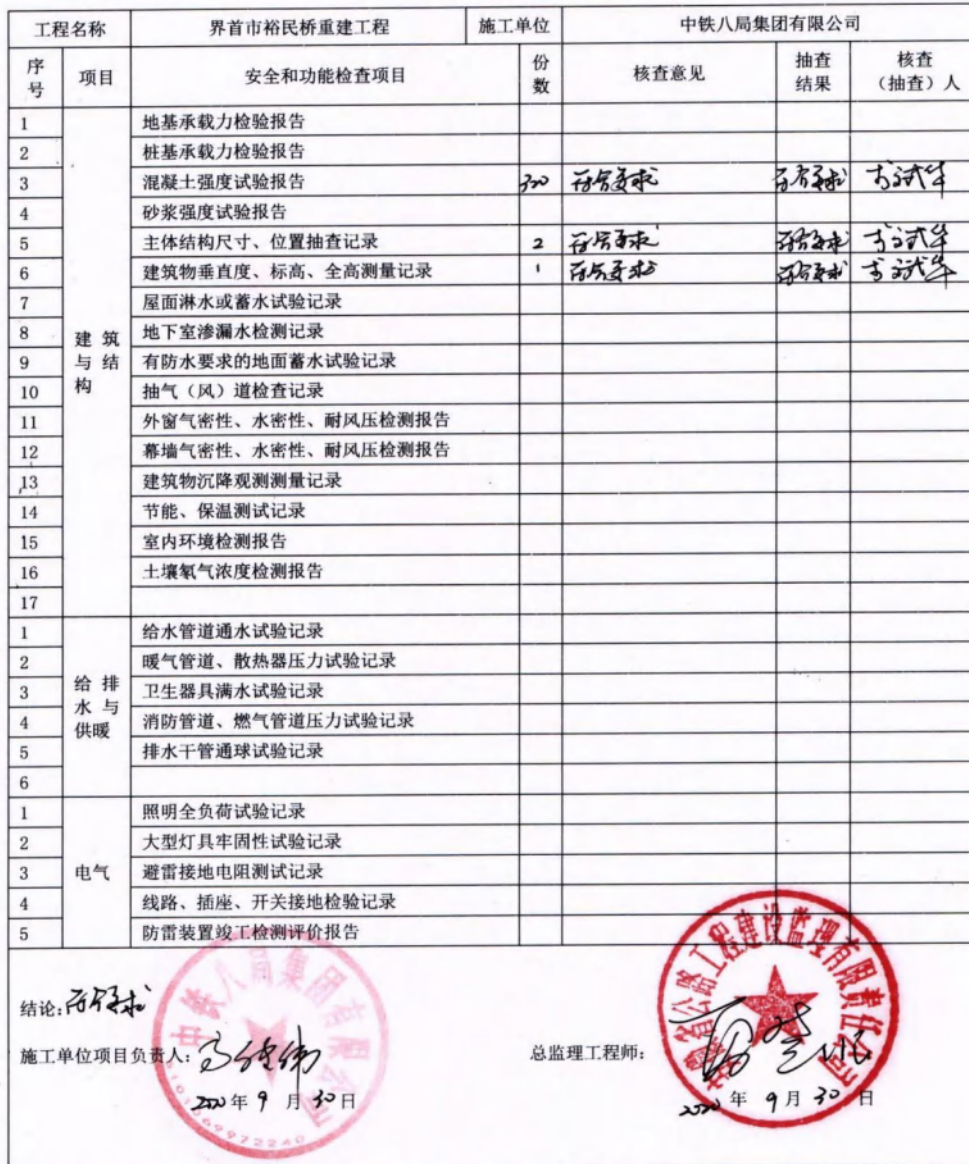 工程名称 界首市裕民桥重建工程 施工单位 中铁八局集团有限公司
序号 项目 安全和功能检查项目 份数 核查意见 抽查结果 核查（抽查）人
建筑与结构
1 地基承载力检验报告
2 桩基承载力检验报告
3 混凝土强度试验报告 320 符合要求 符合要求
4 砂浆强度试验报告
5 主体结构尺寸、位置抽查记录 2 符合要求 符合要求
6 建筑物垂直度、标高、全高测量记录 1 符合要求 符合要求
7 屋面淋水或蓄水试验记录
8 地下室渗漏水检测记录
9 有防水要求的地面蓄水试验记录
10 抽气（风）道检查记录
11 外窗气密性、水密性、耐风压检测报告
12 幕墙气密性、水密性、耐风压检测报告
13 建筑物沉降观测测量记录
14 节能、保温测试记录
15 室内环境检测报告
16 土壤氡气浓度检测报告
17
给排水与供暖
1 给水管道通水试验记录
2 暖气管道、散热器压力试验记录
3 卫生器具满水试验记录
4 消防管道、燃气管道压力试验记录
5 排水干管通球试验记录
6
电气
1 照明全负荷试验记录
2 大型灯具牢固性试验记录
3 避雷接地电阻测试记录
4 线路、插座、开关接地检验记录
5 防雷装置竣工检测评价报告
结论：符合要求
施工单位项目负责人：
总监理工程师：
2020年9月30日
2020年9月30日
中铁八局集团有限公司
省公路工程建设监理有限责任公司